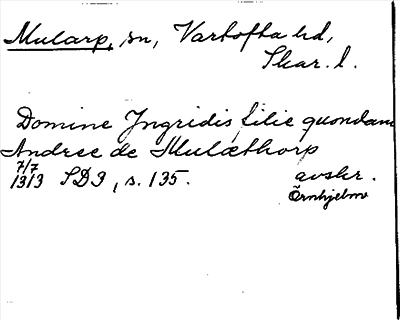 Mularp, sn, Vartofta hd,
Skar. l.
Domine Jngridis filie quondam
Andree de Mulæthorp
7/7 1313 SD3, s. 135. avskr.
Örnhjelm